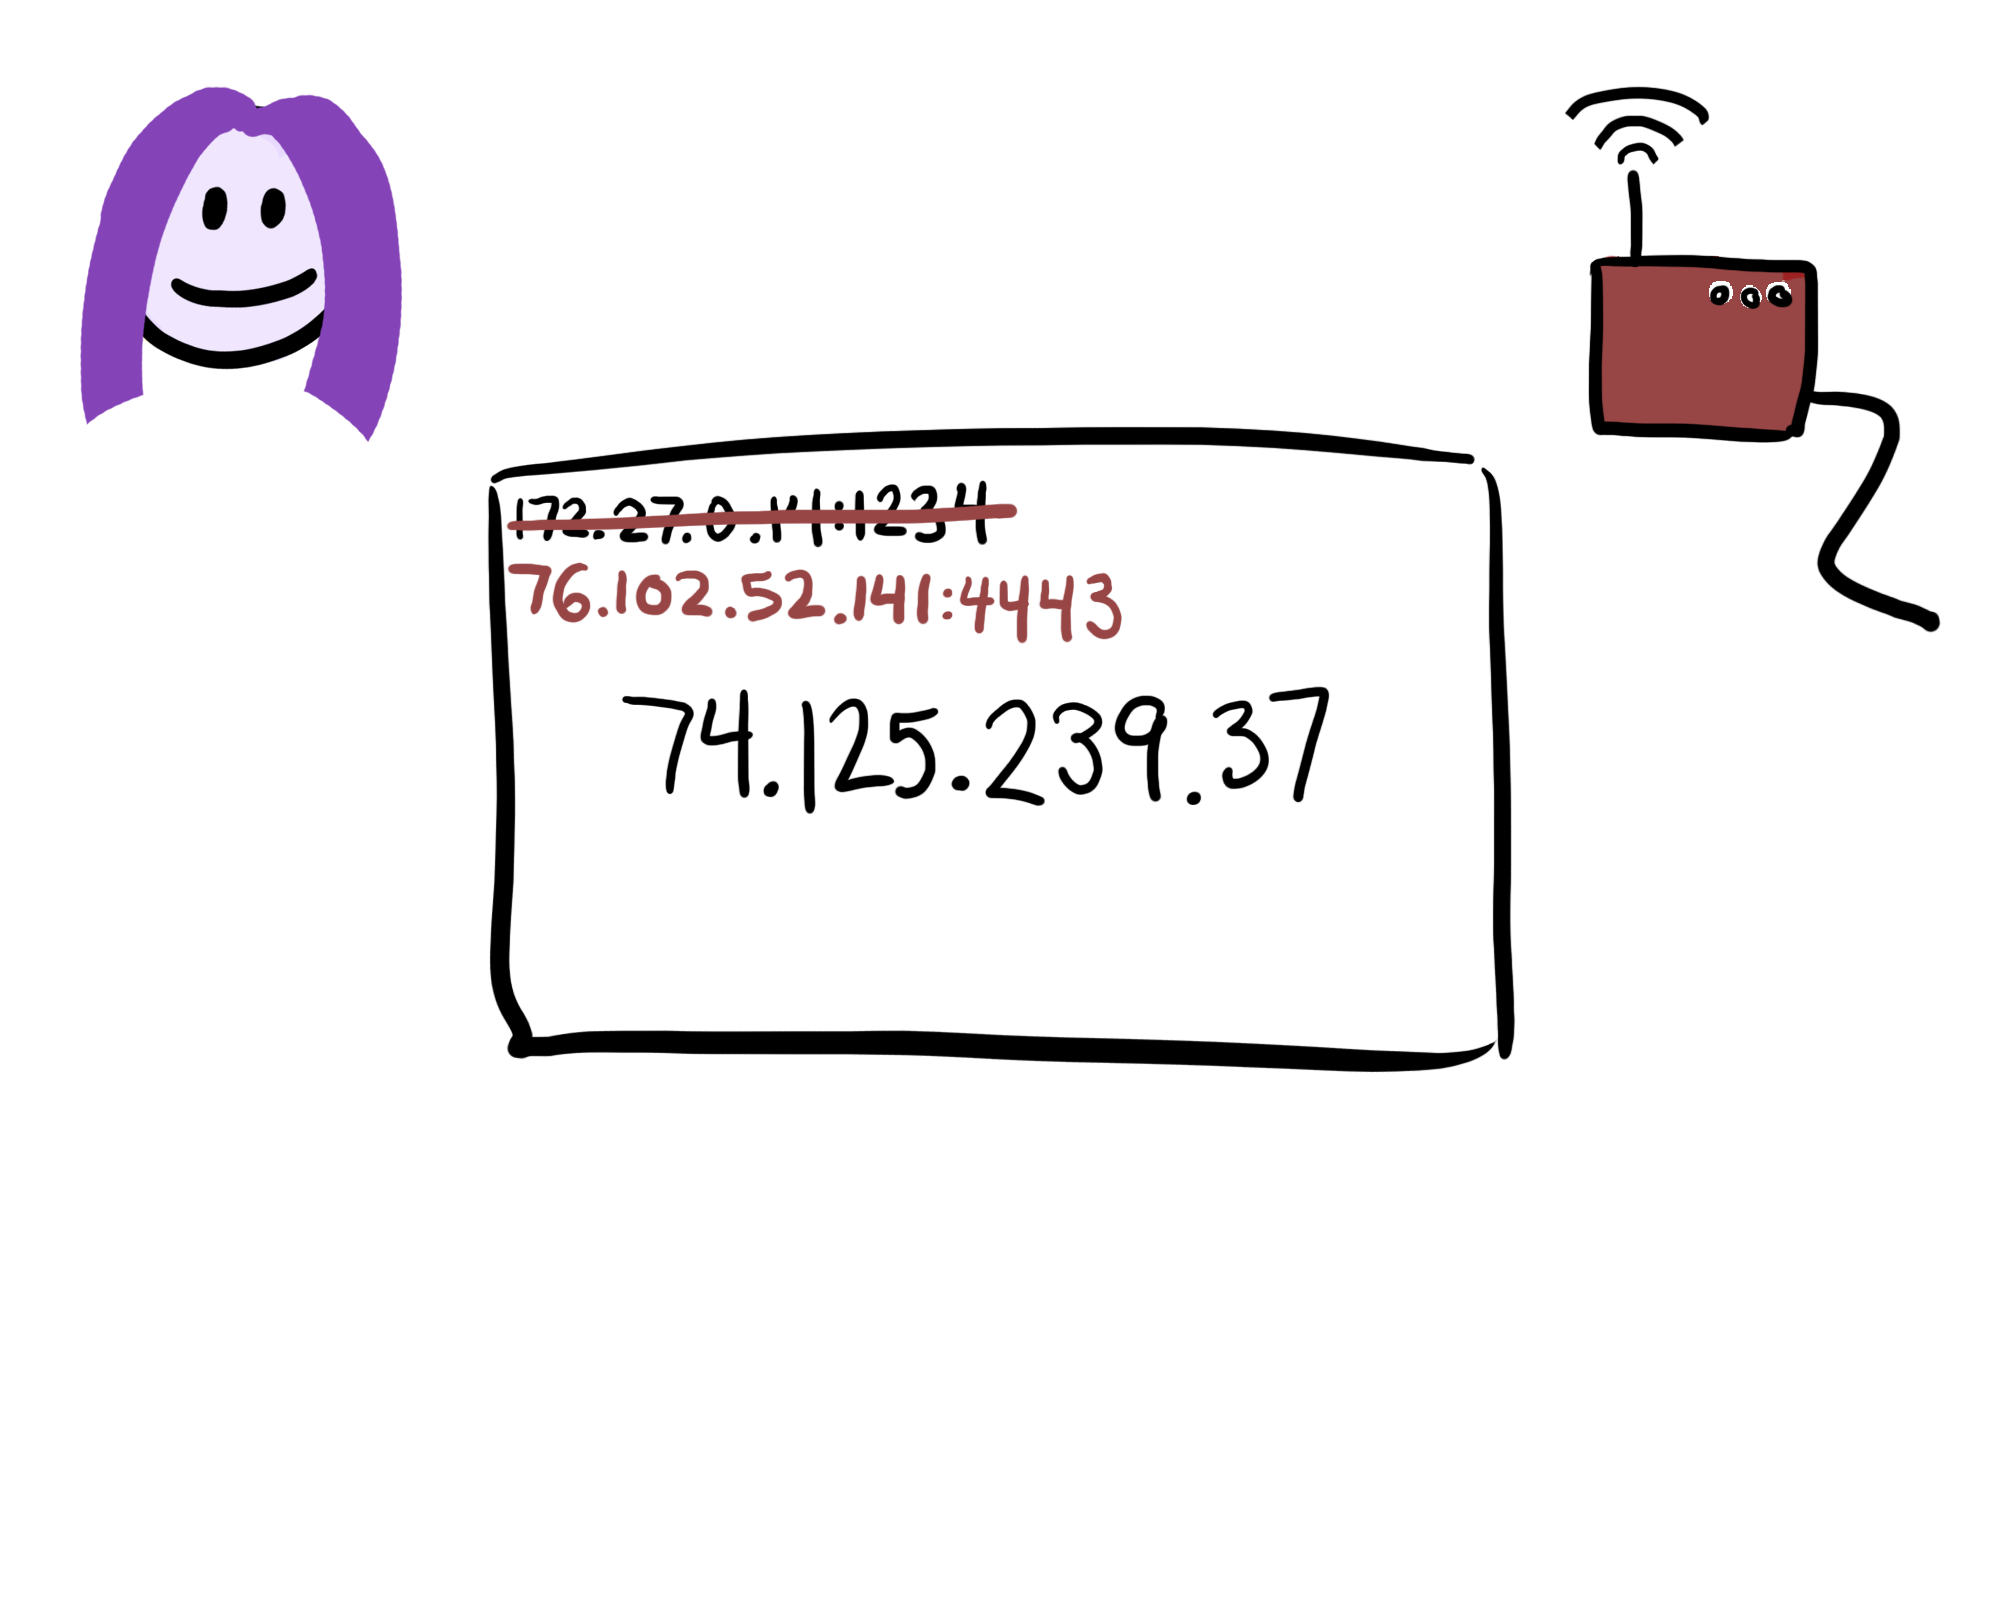 172.27.0.141:1234
76.102.52.141:4443
74.125.239.37